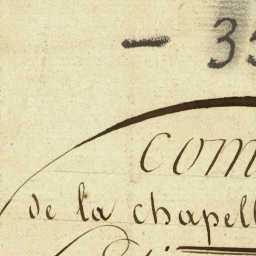 - 35
com
de la chapell